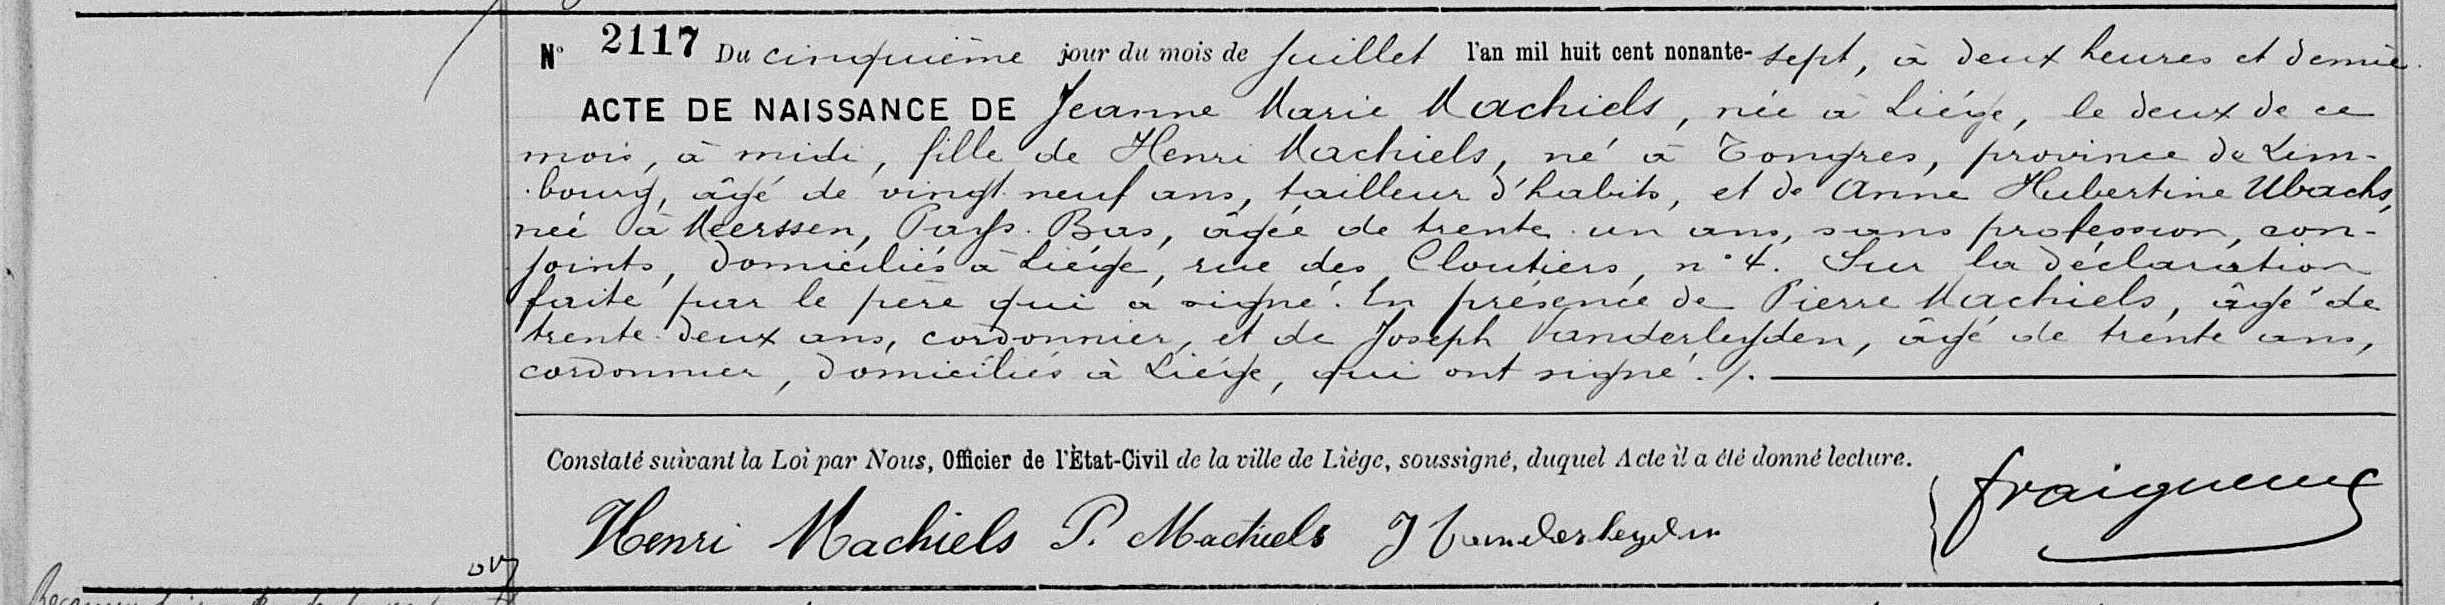 N° 2117 Du cinquième jour du mois de Juillet l'an mil huit cent nonante-sept, à deux heures et demie.
ACTE DE NAISSANCE DE Jeanne Marie Machiels, née à Liége, le deux de ce
mois, à midi, fille de Henri Machiels, né à Tongres, province de Lim-
bourg, âgé de vingt-neuf ans, tailleur d'habits, et de Anne Hubertine Ubachs,
née à Meerssen, Pays-Bas, âgée de trente-un ans, sans profession, con-
joints, domiciliés à Liége, rue des Cloutiers, n° 4. Sur la déclaration
faite par le père qui a signé. En présence de Pierre Machiels, âgé de
trente-deux ans, cordonnier, et de Joseph Vanderleyden, âgé de trente ans,
cordonnier, domiciliés à Liége, qui ont signé./.
Constaté suivant la Loi par Nous, Officier de l'État-Civil de la ville de Liége, soussigné, duquel Acte il a été donné lecture.
Henri Machiels P. Machiels J Vanderleyden